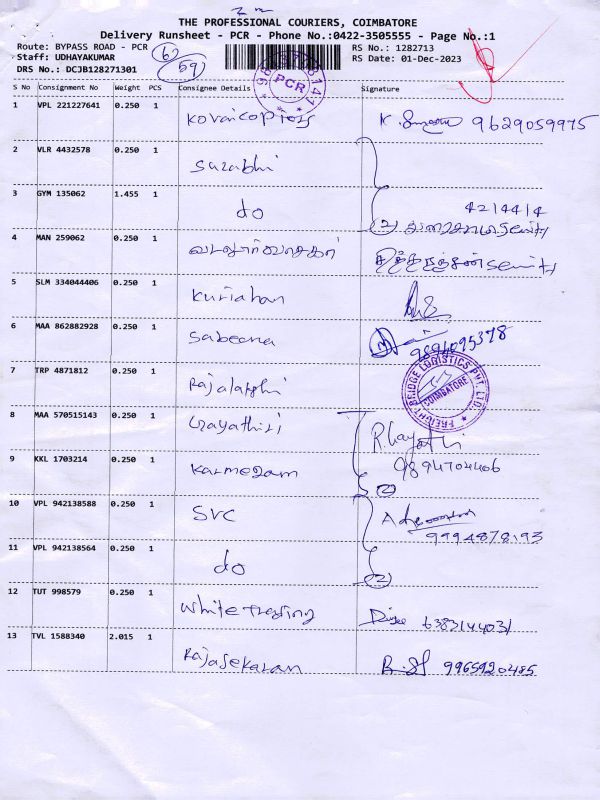 THE PROFESSIONAL COURIERS, COIMBATORE
Delivery Runsheet - PCR - Phone No.:0422-3505555 - Page No.:1
Route: BYPASS ROAD - PCR
RS No.: 1282713
Staff: UDHAYAKUMAR
RS Date: 01-Dec-2023
DRS No.: DCJB128271301
62
59
PCR
S No Consignment No Weight PCS Consignee Details Signature
1 VPL 221227641 0.250 1 9629059975
2 VLR 4432578 0.250 1 Surabhi
3 GYM 135062 1.455 1 do 4214414
4 MAN 259062 0.250 1
5 SLM 334044406 0.250 1 Kuriahan
6 MAA 862882928 0.250 1 Sabeena 9894095378
7 TRP 4871812 0.250 1 FREIGHT BRIDGE LOGISTICS PVT. LTD. COIMBATORE
8 MAA 570515143 0.250 1 Gayathiri
9 KKL 1703214 0.250 1 Karmegam 9894704406
10 VPL 942138588 0.250 1 SVC 9994878193
11 VPL 942138564 0.250 1 do 2
12 TUT 998579 0.250 1 White Trading 6383144031
13 TVL 1588340 2.015 1 Rajasekaran 9965920485